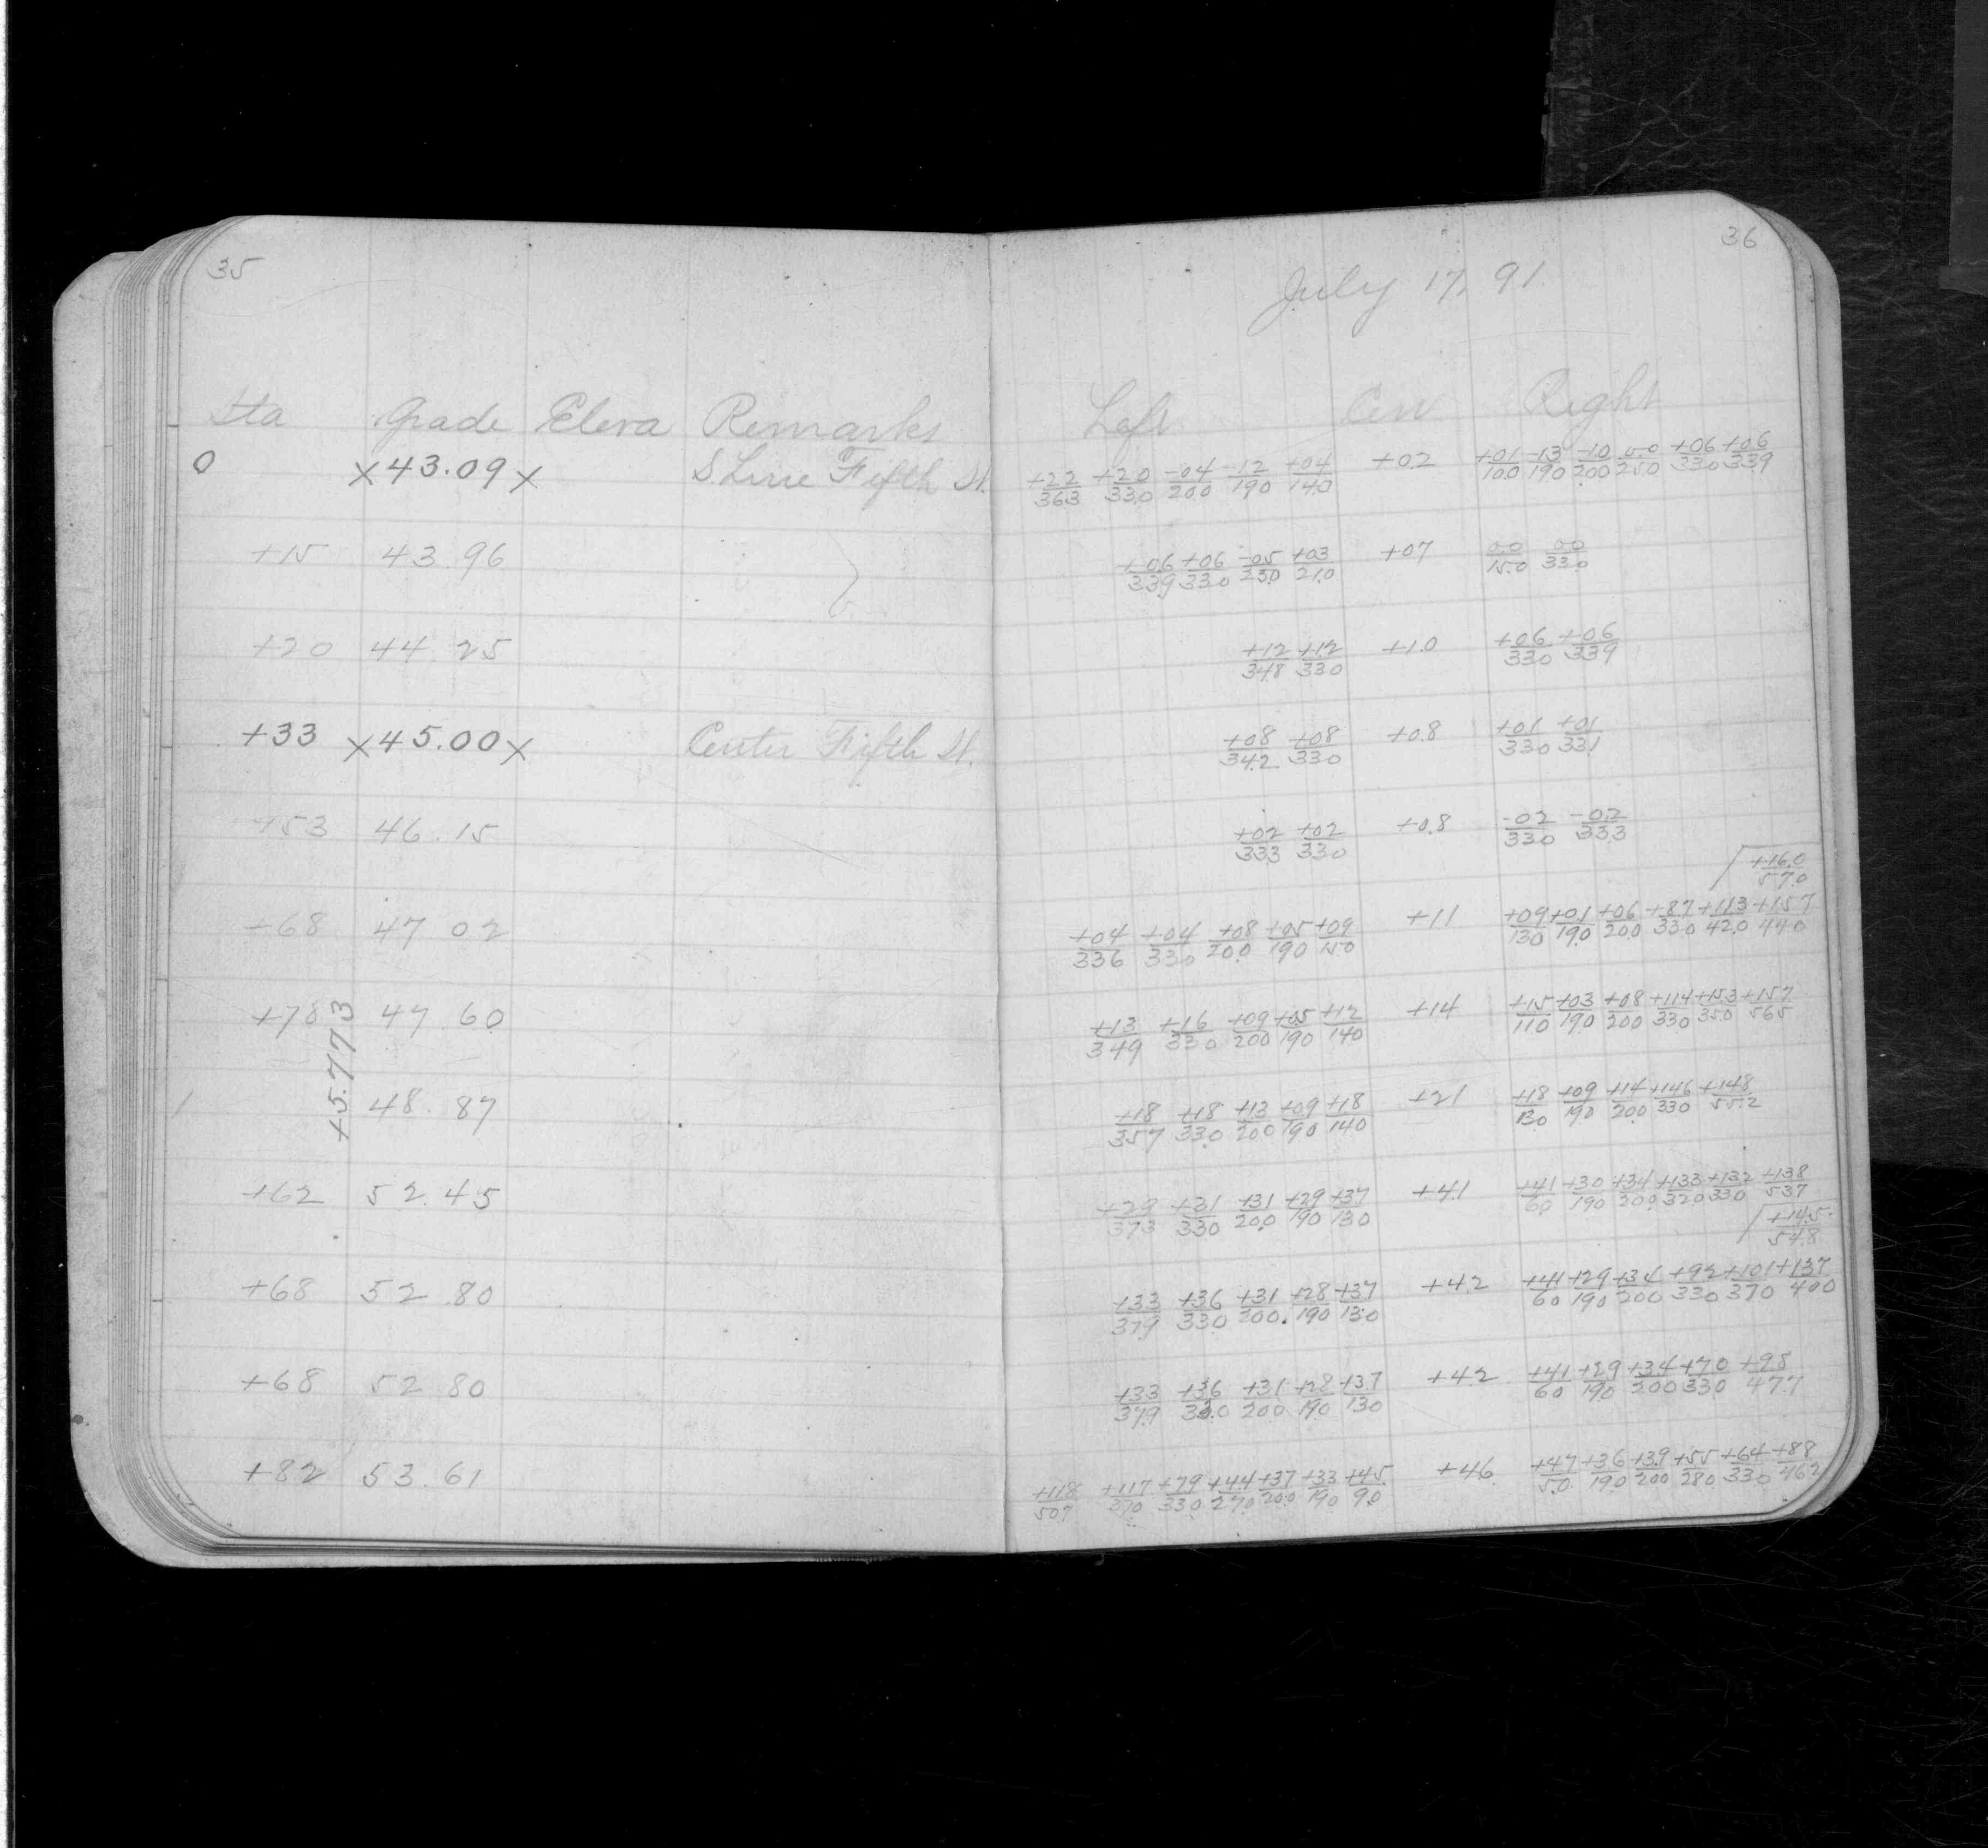 35
Sta Grade Eleva Remarks
0 x43.09x S. Line Fifth St.
+15 43.96
+20 44.25
+33 x45.00x Center Fifth St.
+53 46.15
+68 47 02
+78 47 60
+5.773
1 48.87
+62 52.45
+68 52.80
+68 52 80
+82 53.61
36
July 17, 91
Left Cen Right
+22/363 +20/330 -04/200 -12/190 +04/140 +02 +01/100 -13/190 -10/200 00/250 +06/330 +06/339
+06/339 +06/330 -05/230 +03/210 +07 00/150 00/330
+12/348 +12/330 +1.0 +06/330 +06/339
+08/342 +08/330 +0.8 +01/330 +01/331
+02/333 +02/330 +0.8 -02/330 -02/333
+16.0/57.0
+04/336 +04/330 +08/200 +05/190 +09/150 +11 +09/130 +01/190 +06/200 +87/330 +113/420 +157/440
+13/349 +16/330 +09/200 +05/190 +12/140 +14 +15/110 +03/190 +08/200 +114/330 +153/350 +157/565
+18/357 +18/330 +13/200 +09/190 +18/140 +21 +18/130 +09/190 +14/200 +146/330 +148/552
+29/373 +31/330 +31/200 +29/190 +37/130 +4.1 +41/60 +30/190 +34/200 +133/320 +132/330 +138/537
+14.5/54.8
+33/379 +36/330 +31/200 +28/190 +37/130 +42 +41/60 +29/190 +34/200 +92/330 +101/370 +137/400
+33/379 +36/330 +31/200 +28/190 +37/130 +4.2 +41/60 +29/190 +34/200 +70/330 +98/477
+118/507 +117/370 +79/330 +44/270 +37/200 +33/190 +45/90 +46 +47/50 +36/190 +39/200 +55/280 +64/330 +88/462